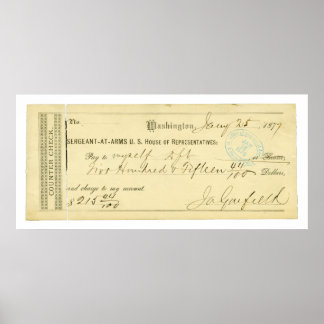 COUNTER CHECK.
No.
Washington, Jany 25 1877
SERGEANT-AT-ARMS U. S. HOUSE OF REPRESENTATIVES:
Pay to myself or Bearer,
Two Hundred & Fifteen 44/100 Dollars,
and charge to my account.
$215 44/100 Ja Garfield